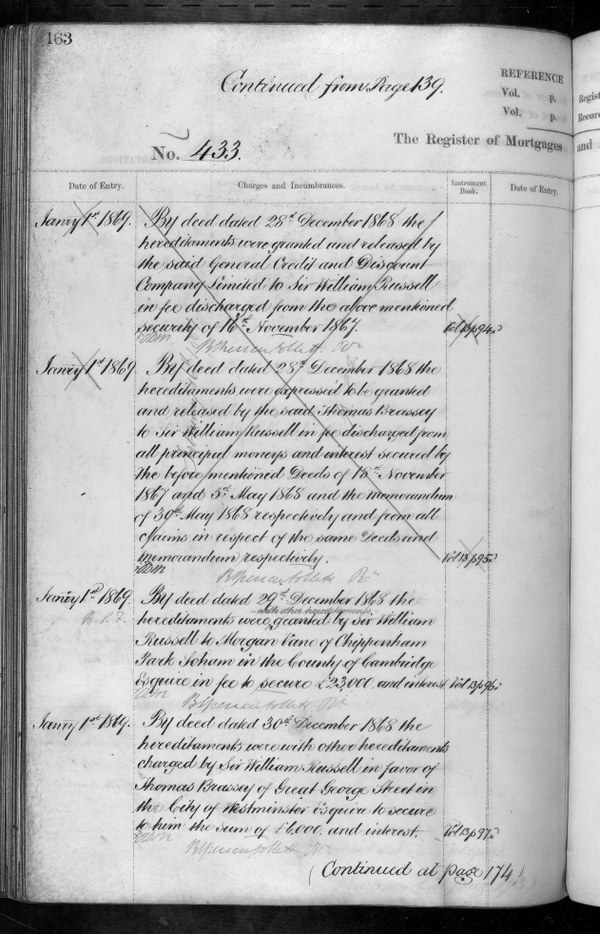 163
Continued from Page 139.
REFERENCE
Vol. p.
Vol. p.
No. 433.
The Register of Mortgages
Date of Entry.
Charges and Incumbrances.
Instrument Book.
Date of Entry.
Janry 1st 1869.
By deed dated 28th December 1868 the
hereditaments were granted and released by
the said General Credit and Discount
Company Limited to Sir William Russell
in fee discharged from the above mentioned
security of 16th November 1867.
Vol 13 p 94
Janry 1st 1869
By deed dated 28th December 1868 the
hereditaments were expressed to be granted
and released by the said Thomas Brassey
to Sir William Russell in fee discharged from
all principal moneys and interest secured by
the before mentioned Deeds of 15th November
1867 and 5th May 1868 and the memorandum
of 30th May 1868 respectively and from all
claims in respect of the same Deeds and
memorandum respectively.
Vol 13 p 95
Janry 1st 1869.
By deed dated 29th December 1868 the
with other hereditaments
hereditaments were granted by Sir William
Russell to Morgan Vane of Chippenham
Park Soham in the County of Cambridge
Esquire in fee to secure £23,000 and interest
Vol 13 p 96
Janry 1st 1869.
By deed dated 30th December 1868 the
hereditaments were with other hereditaments
charged by Sir William Russell in favor of
Thomas Brassey of Great George Street in
the City of Westminster Esquire to secure
to him the sum of £6,000 and interest.
Vol 13 p 97
(Continued at page 174)
Regist
Record
and